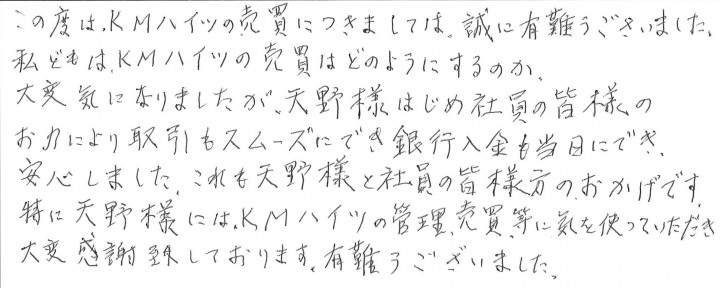 この度は、KMハイツの売買につきましては、誠に有難うございました。
私どもは、KMハイツの売買はどのようにするのか、
大変気になりましたが、天野様はじめ社員の皆様の
お力により取引もスムーズにでき銀行入金も当日にでき、
安心しました。これも天野様と社員の皆様方の、おかげです。
特に天野様には、KMハイツの管理、売買、等に気を使っていただき
大変感謝致しております。有難うございました。